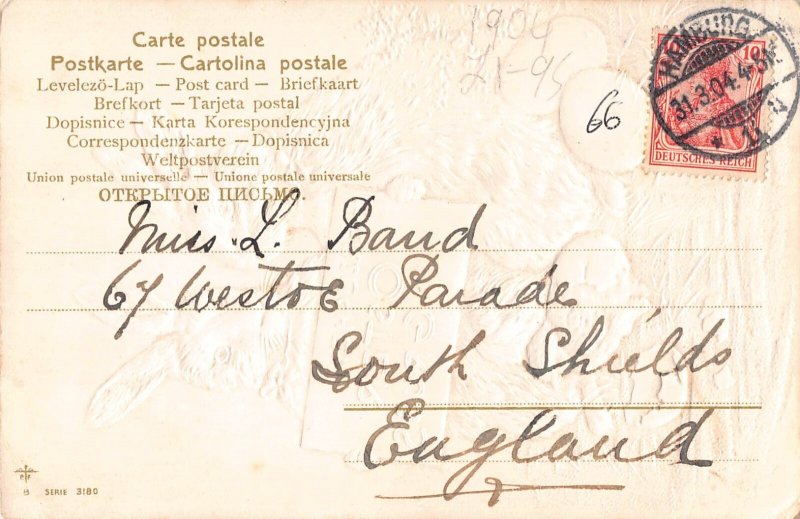 Carte postale
Postkarte — Cartolina postale
Levelező-Lap — Post card — Briefkaart
Brefkort — Tarjeta postal
Dopisnice — Karta Korespondencyjna
Correspondenzkarte — Dopisnica
Weltpostverein
Union postale universelle — Unione postale universale
ОТКРЫТОЕ ПИСЬМО.
1904
66
10
HAMBURG
31.3.04.4-5N.
* 11 u
DEUTSCHES REICH
Miss. L. Band
67 Westoe Parade
South Shields
England
B SERIE 3180